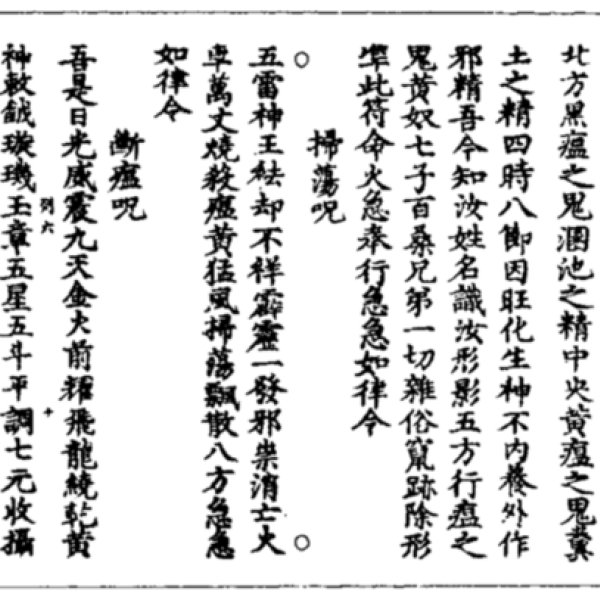 北方黑瘟之鬼溷池之精中央黃瘟之鬼糞
土之精四時八節因旺化生神不內養外作
邪精吾今知汝姓名識汝形影五方行瘟之
鬼黃奴七子百桑兄弟一切雜俗竄跡除形
準此符命火急奉行急急如律令
掃蕩呪
五雷神王祛却不祥霹靂一發邪祟消亡火
車萬丈燒殺瘟黃猛風掃蕩飄散八方急急
如律令
斷瘟呪
吾是日光威震九天金火前耀飛龍繞乾黃
列六
十
神敕鉞璇璣玉章五星五斗平調七元收攝